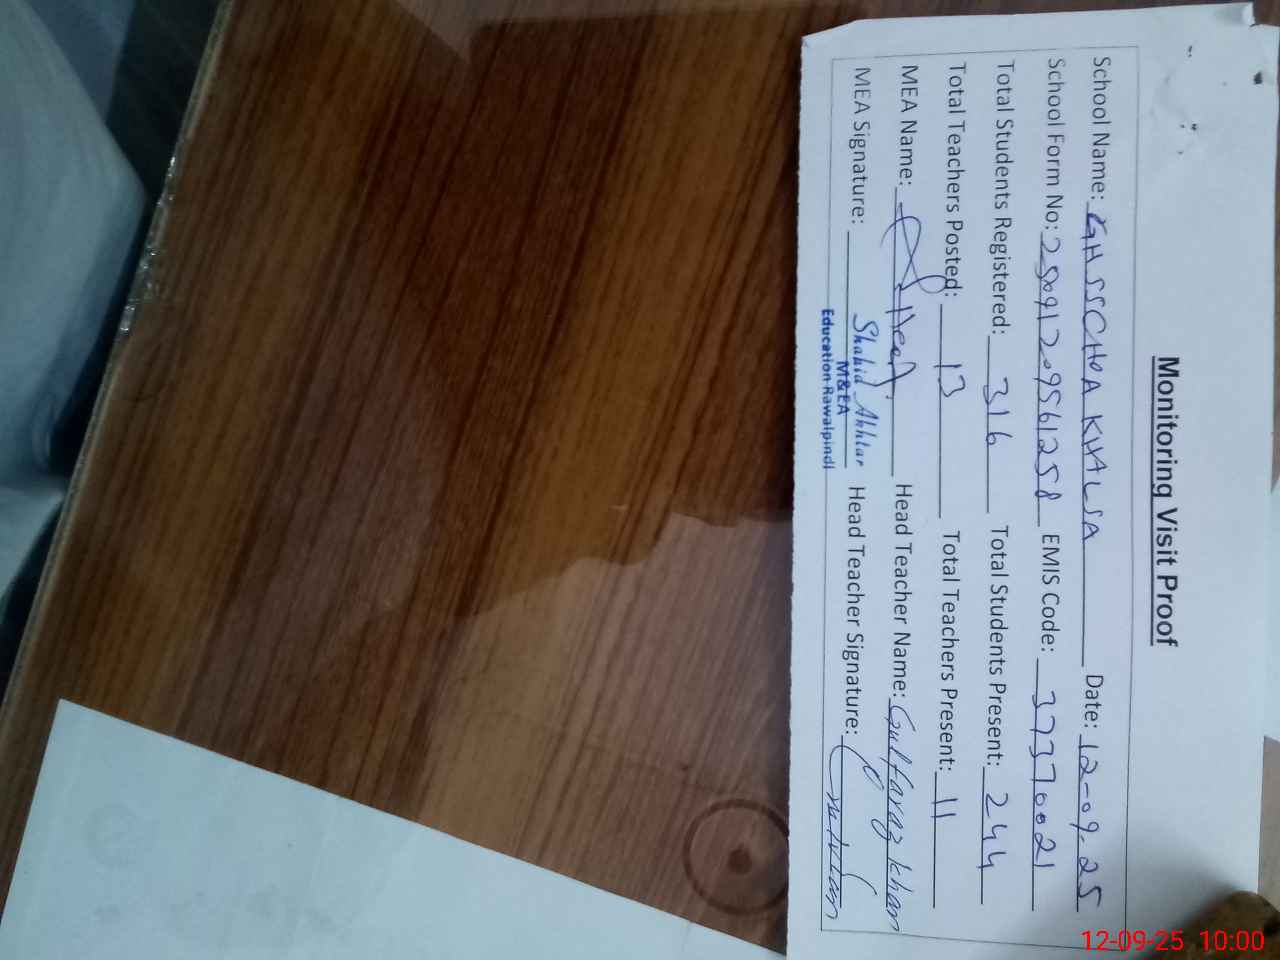 Monitoring Visit Proof
School Name: GHSSCHOA KHALSA Date: 12-09-25
School Form No: EMIS Code: 37370021
Total Students Registered: 316 Total Students Present: 244
Total Teachers Posted: 13 Total Teachers Present: 11
MEA Name: Head Teacher Name: Gulfaraz khan
MEA Signature: Shahid Akhtar Head Teacher Signature:
M&EA
Education Rawalpindi
12-09-25 10:00